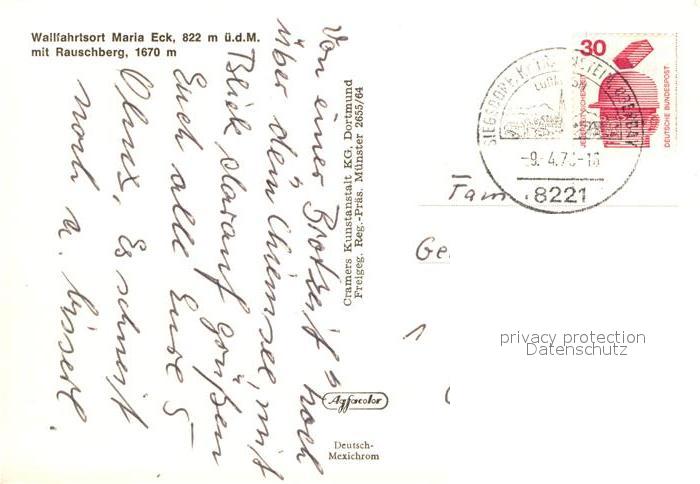 Wallfahrtsort Maria Eck, 822 m ü.d.M.
mit Rauschberg, 1670 m
Von einer Brotzeit hoch
über dem Chiemsee, mit
Blick darauf grüßen
Euch alle Eure 5
Es schneit
noch a bisserl.
Cramers Kunstanstalt KG, Dortmund
Freigeg. Reg.-Präs. Münster 2655/64
Agfacolor
Deutsch-
Mexichrom
30
JEDERZEIT SICHERHEIT
DEUTSCHE BUNDESPOST
8221
Fam.
Ge
privacy protection
Datenschutz